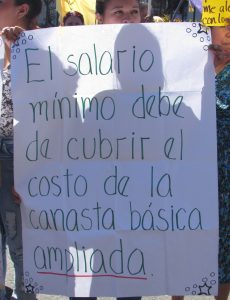 El salario
mínimo debe
de cubrir el
costo de la
canasta básica
ampliada.